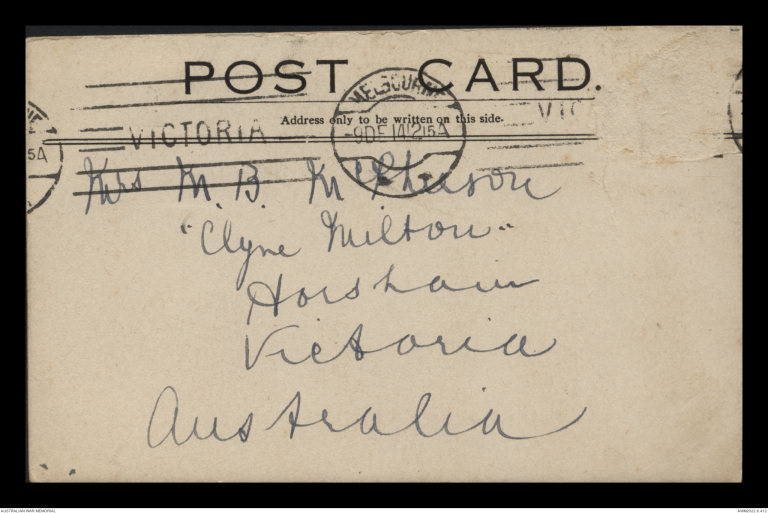 POST CARD.
MELBOURNE
Address only to be written on this side.
VICTORIA
9 DE 14 12 15A
VIC
5A
Mrs M. B. McPherson
"Clyne Milton"
Horsham
Victoria
Australia
AUSTRALIAN WAR MEMORIAL